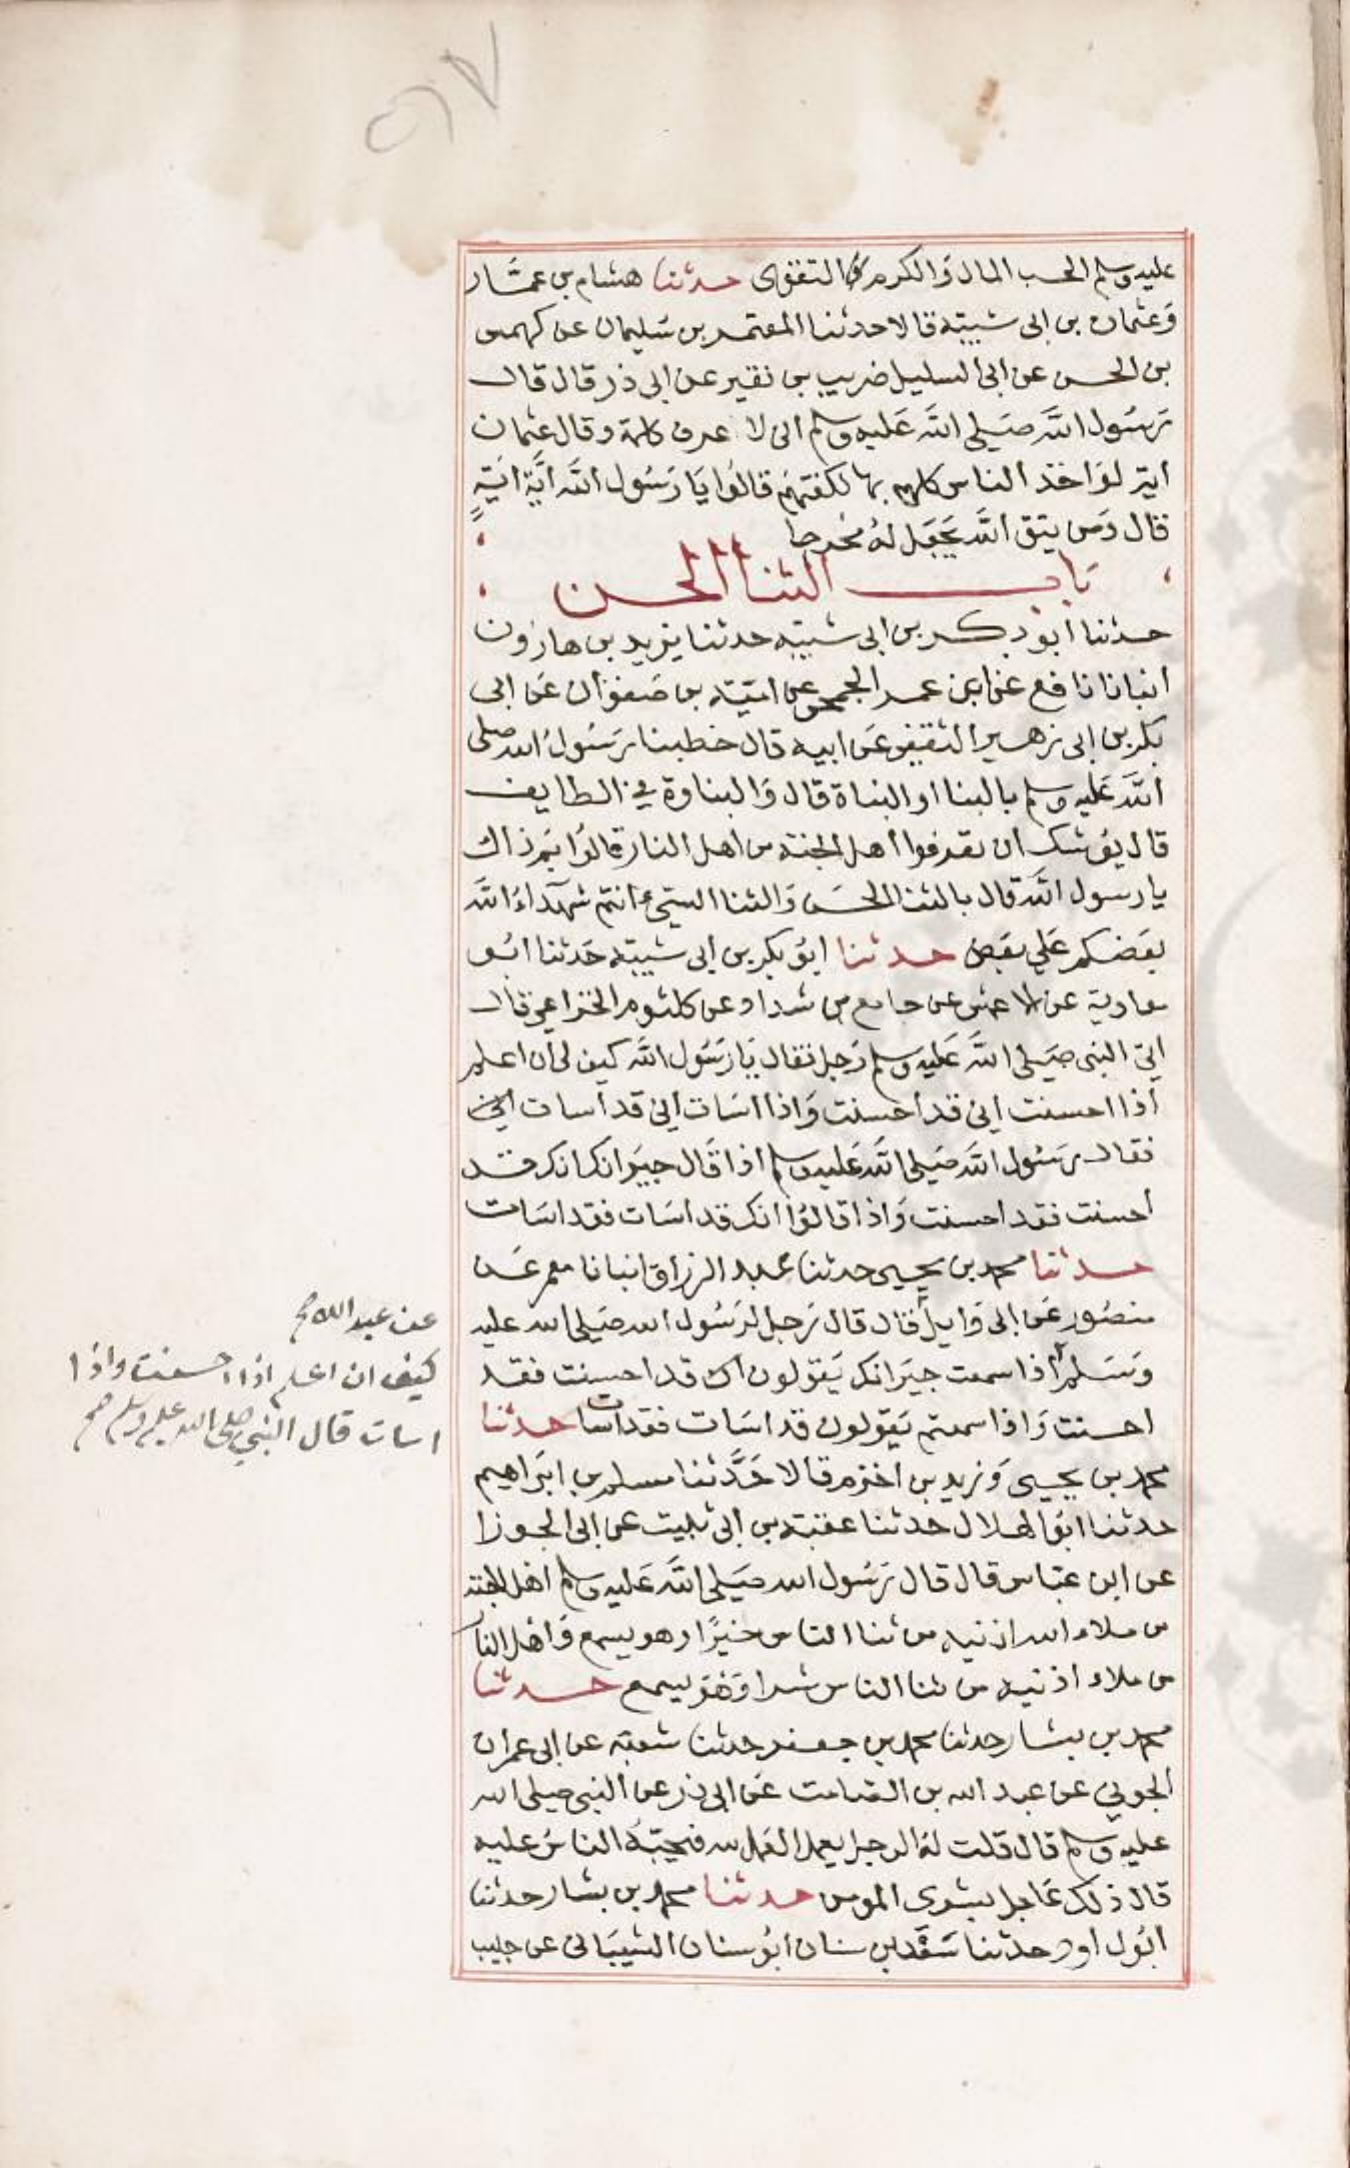 ٥٦٧
عليه وسلم الحسب المال والكرم التقوى حدثنا هشام بن عمار
وعثمان بن ابى شيبة قالا حدثنا المعتمر بن سليمان عن كهمس
بن الحسن عن ابى السليل ضريب بن نقير عن ابى ذر قال قال
رسول الله صلى الله عليه وسلم انى لا عرف كلمة وقال عثمان
اية لو اخذ الناس كلهم بها لكفتهم قالوا يا رسول الله اية اية
قال ومن يتق الله يجعل له مخرجا
باب الثنا الحسن
حدثنا ابو بكر بن ابى شيبة حدثنا يزيد بن هارون
انبانا نافع عن ابن عمر الجمحى عن امية بن صفوان عن ابى
بكر بن ابى زهير الثقفى عن ابيه قال خطبنا رسول الله صلى
الله عليه وسلم بالبنا او النباة قال والبناوة في الطايف
قال يوشك ان تعرفوا اهل الجنة من اهل النار قالوا بم ذاك
يا رسول الله قال بالثنا الحسن والثنا السيى انتم شهداء الله
بعضكم على بعض حدثنا ابو بكر بن ابى شيبة حدثنا ابو
معاوية عن الاعمش عن جامع بن شداد عن كلثوم الخزاعى قال
اتى النبى صلى الله عليه وسلم رجل فقال يا رسول الله كيف لى ان اعلم
اذا احسنت انى قد احسنت واذا اسات انى قد اسات
فقال رسول الله صلى الله عليه وسلم اذا قال جيرانك انك قد
احسنت فقد احسنت واذا قالوا انك قد اسات فقد اسات
حدثنا محمد بن يحيى حدثنا عبد الرزاق انبانا معمر عن
منصور عن ابى وايل قال قال رجل لرسول الله صلى الله عليه
وسلم اذا سمعت جيرانك يقولون ان قد احسنت فقد
احسنت واذا سمعتم يقولون قد اسات فقد اسات حدثنا
محمد بن يحيى وزيد بن اخزم قالا حدثنا مسلم بن ابراهيم
حدثنا ابو الهلال حدثنا عقبة بن ابى ثبيت عن ابى الجوزا
عن ابن عباس قال قال رسول الله صلى الله عليه وسلم اهل الجنة
من ملاء الله اذنيه من ثنا الناس خيرا وهو يسمع واهل النار
من ملاء اذنيه من ثنا الناس شرا وهو يسمع حدثنا
محمد بن بشار حدثنا محمد بن جعفر حدثنا شعبة عن ابى عمران
الجونى عن عبد الله بن الصامت عن ابى ذر عن النبى صلى الله
عليه وسلم قال قلت له الرجل يعمل العمل لله فيحبه الناس عليه
قال ذلك عاجل بشرى المومن حدثنا محمد بن بشار حدثنا
ابو داود حدثنا سعيد بن سنان ابو سنان الشيبانى عن حبيب
عن عبد الله صح
كيف ان اعلم اذا احسنت واذا
اسات قال النبي صلى الله عليه وسلم صح